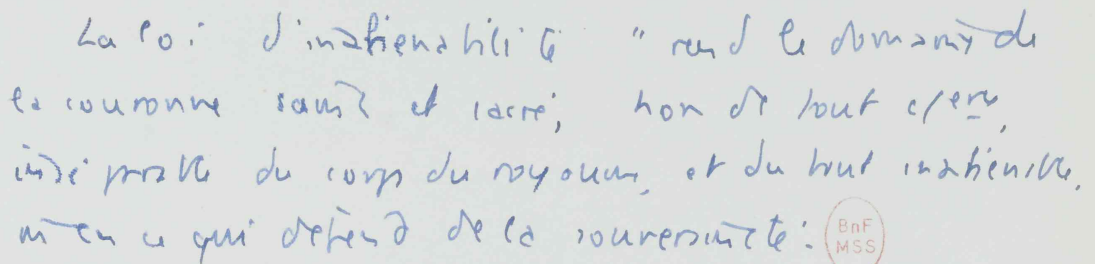 La loi d'inaliénabilité " rend le domaine de
la couronne saint et sacré, hors de tout
inséparable du corps du royaume, et du tout inaliénable,
en ce qui dépend de la souveraineté.
BnF
MSS